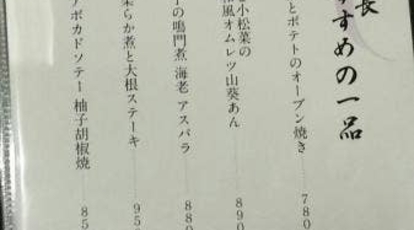 長
すすめの一品
とポテトのオーブン焼き 780
小松菜の
和風オムレツ山葵あん 890
の鳴門煮 海老 アスパラ 880
柔らか煮と大根ステーキ 95
アボカドソテー 柚子胡椒焼 85